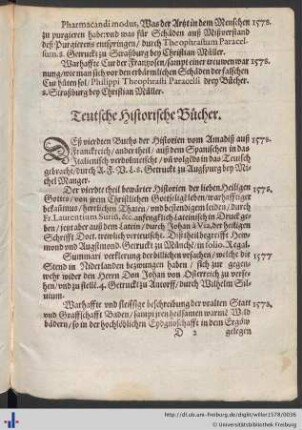 Pharmacandi modus, Was der Artzt in dem Menschen 1578.
zu purgieren habe, vnd was für Schäden auß Mißverstand
deß Purgierens entspringen / durch Theophrastum Paracel-
sum. 8. Getruckt zu Straßburg bey Christian Müller.
Warhaffte Cur der Frantzosen / sampt einer trewen war 1578.
nung / wie man sich vor den erbärmlichen Schäden der falschen
Cur hüten sol / Philippi Theophrasti Paracelsi beyder Bücher.
8. Straßburg bey Christian Müller.
Teutsche Historische Bücher.
DEß vierdten Buchs der Historien vom Amadiß auß 1578.
Franckreich / ander theil / auß dem Spanischen in das
Italienisch verdolmetscht / vñ volgends in das Teutsch
gebracht / durch A. F. V. L. 8. Getruckt zu Augspurg bey Mi-
chel Manger.
Der vierdte theil bewärter Historien der lieben Heiligen 1578.
Gottes / von jrem Christlichen Gottseligẽ leben / warhafftiger
bekañtnuß / herrlichen Thaten / vnd bestendigem leiden / durch
Fr. Laurentium Surium, &c. anfengklich Lateinisch in Druck ge-
ben / jetzt aber auß dem Latein / durch Johan à Via, der heiligen
Schrifft Doct. trewlich verteutscht.
vnd Augstmond. Getruckt zu Münchẽ / in folio. Regal.
Summari erklerung der billichen vrsachen / welche die 1577
Stend in Niderlanden bezwungen haben / sich zur gegen-
wehr wider den Herrn Don Johan von Osterreich zu verse-
hen / vnd zu stellẽ. 4. Getruckt zu Antorff / durch Wilhelm Sil-
uium.
Warhaffte vnd fleissige beschreibung der vralten Statt 1578.
vnd Graffschafft Baden / sampt jren heilsamen warmẽ Wild
bädern / so in der hochlöblichen Eydgnoschafft in dem Ergöw
D 2 gelegen
http://dl.ub.uni-freiburg.de/diglit/willer1578/0036
© Universitätsbibliothek Freiburg